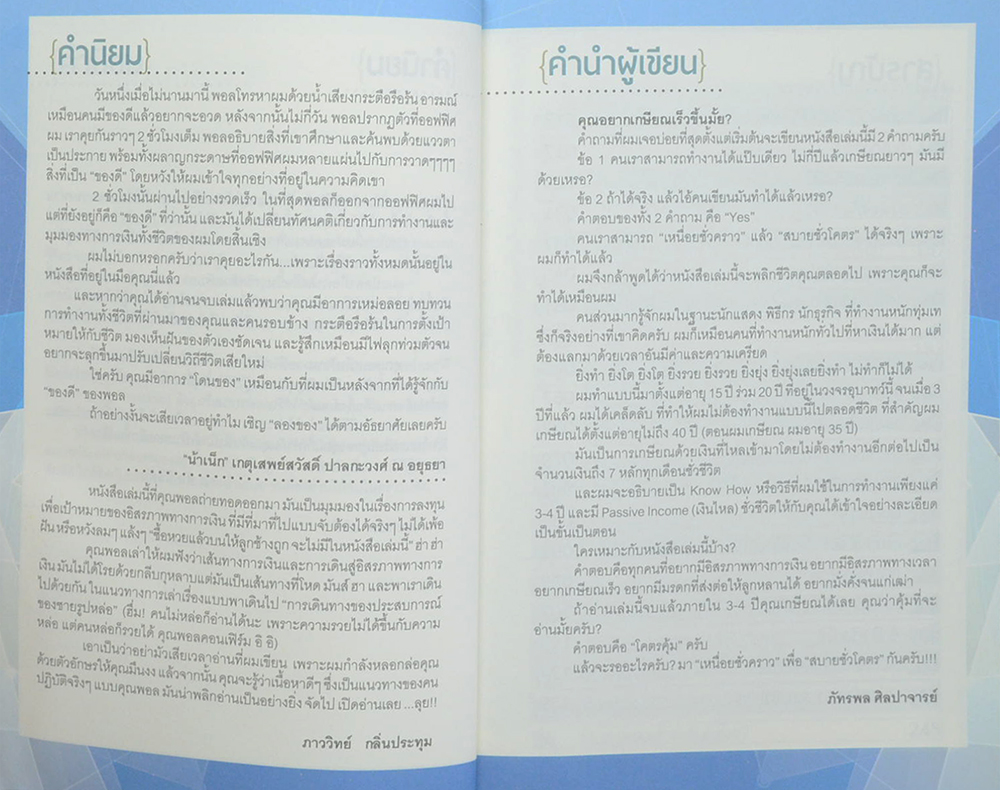 {คำนิยม}
วันหนึ่งเมื่อไม่นานมานี้ พอลโทรหาผมด้วยน้ำเสียงกระตือรือร้น อารมณ์
เหมือนคนมีของดีแล้วอยากจะอวด หลังจากนั้นไม่กี่วัน พอลปรากฏตัวที่ออฟฟิศ
ผม เราคุยกันราวๆ 2 ชั่วโมงเต็ม พอลอธิบายสิ่งที่เขาศึกษาและค้นพบด้วยแววตา
เป็นประกาย พร้อมทั้งผลาญกระดาษที่ออฟฟิศผมหลายแผ่นไปกับการวาดๆๆๆๆ
สิ่งที่เป็น "ของดี" โดยหวังให้ผมเข้าใจทุกอย่างที่อยู่ในความคิดเขา
2 ชั่วโมงนั้นผ่านไปอย่างรวดเร็ว ในที่สุดพอลก็ออกจากออฟฟิศผมไป
แต่ที่ยังอยู่ก็คือ "ของดี" ที่ว่านั้น และมันได้เปลี่ยนทัศนคติเกี่ยวกับการทำงานและ
มุมมองทางการเงินทั้งชีวิตของผมโดยสิ้นเชิง
ผมไม่บอกหรอกครับว่าเราคุยอะไรกัน...เพราะเรื่องราวทั้งหมดนั้นอยู่ใน
หนังสือที่อยู่ในมือคุณนี่แล้ว
และหากว่าคุณได้อ่านจนจบเล่มแล้วพบว่าคุณมีอาการเหม่อลอย ทบทวน
การทำงานทั้งชีวิตที่ผ่านมาของคุณและคนรอบข้าง กระตือรือร้นในการตั้งเป้า
หมายให้กับชีวิต มองเห็นฝันของตัวเองชัดเจน และรู้สึกเหมือนมีไฟลุกท่วมตัวจน
อยากจะลุกขึ้นมาปรับเปลี่ยนวิถีชีวิตเสียใหม่
ใช่ครับ คุณมีอาการ "โดนของ" เหมือนกับที่ผมเป็นหลังจากที่ได้รู้จักกับ
"ของดี" ของพอล
ถ้าอย่างงั้นจะเสียเวลาอยู่ทำไม เชิญ "ลองของ" ได้ตามอัธยาศัยเลยครับ
"น้าเน็ก" เกตุเสพย์สวัสดิ์ ปาลกะวงศ์ ณ อยุธยา
หนังสือเล่มนี้ที่คุณพอลถ่ายทอดออกมา มันเป็นมุมมองในเรื่องการลงทุน
เพื่อเป้าหมายของอิสรภาพทางการเงิน ที่มีที่มาที่ไปแบบจับต้องได้จริงๆ ไม่ได้เพ้อ
ฝัน หรือหวังลมๆ แล้งๆ "ซื้อหวยแล้วบนให้ลูกช้างถูก จะไม่มีในหนังสือเล่มนี้" ฮ่า ฮ่า
คุณพอลเล่าให้ผมฟังว่าเส้นทางการเงินและการเดินสู่อิสรภาพทางการ
เงิน มันไม่ได้โรยด้วยกลีบกุหลาบแต่มันเป็นเส้นทางที่โหด มันส์ ฮา และพาเราเดิน
ไปด้วยกัน ในแนวทางการเล่าเรื่องแบบพาเดินไป "การเดินทางของประสบการณ์
ของชายรูปหล่อ" (ฮึ่ม! คนไม่หล่อก็อ่านได้นะ เพราะความรวยไม่ได้ขึ้นกับความ
หล่อ แต่คนหล่อก็รวยได้ คุณพอลคอนเฟิร์ม อิ อิ)
เอาเป็นว่าอย่ามัวเสียเวลาอ่านที่ผมเขียน เพราะผมกำลังหลอกล่อคุณ
ด้วยตัวอักษรให้คุณมึนงง แล้วจากนั้น คุณจะรู้ว่าเนื้อหาดีๆ ซึ่งเป็นแนวทางของคน
ปฏิบัติจริงๆ แบบคุณพอล มันน่าพลิกอ่านเป็นอย่างยิ่ง จัดไป เปิดอ่านเลย ...ลุย!!
ภาววิทย์ กลิ่นประทุม
{คำนำผู้เขียน}
คุณอยากเกษียณเร็วขึ้นมั้ย?
คำถามที่ผมเจอบ่อยที่สุดตั้งแต่เริ่มต้นจะเขียนหนังสือเล่มนี้มี 2 คำถามครับ
ข้อ 1 คนเราสามารถทำงานได้แป๊บเดียว ไม่กี่ปีแล้วเกษียณยาวๆ มันมี
ด้วยเหรอ?
ข้อ 2 ถ้าได้จริง แล้วไอ้คนเขียนมันทำได้แล้วเหรอ?
คำตอบของทั้ง 2 คำถาม คือ "Yes"
คนเราสามารถ "เหนื่อยชั่วคราว" แล้ว "สบายชั่วโคตร" ได้จริงๆ เพราะ
ผมก็ทำได้แล้ว
ผมจึงกล้าพูดได้ว่าหนังสือเล่มนี้จะพลิกชีวิตคุณตลอดไป เพราะคุณก็จะ
ทำได้เหมือนผม
คนส่วนมากรู้จักผมในฐานะนักแสดง พิธีกร นักธุรกิจ ที่ทำงานหนักทุ่มเท
ซึ่งก็จริงอย่างที่เขาคิดครับ ผมก็เหมือนคนที่ทำงานหนักทั่วไปที่หาเงินได้มาก แต่
ต้องแลกมาด้วยเวลาอันมีค่าและความเครียด
ยิ่งทำ ยิ่งโต ยิ่งโต ยิ่งรวย ยิ่งรวย ยิ่งยุ่ง ยิ่งยุ่งเลยยิ่งทำ ไม่ทำก็ไม่ได้
ผมทำแบบนี้มาตั้งแต่อายุ 15 ปี ร่วม 20 ปี ที่อยู่ในวงจรอุบาทว์นี้ จนเมื่อ 3
ปีที่แล้ว ผมได้เคล็ดลับ ที่ทำให้ผมไม่ต้องทำงานแบบนี้ไปตลอดชีวิต ที่สำคัญผม
เกษียณได้ตั้งแต่อายุไม่ถึง 40 ปี (ตอนผมเกษียณ ผมอายุ 35 ปี)
มันเป็นการเกษียณด้วยเงินที่ไหลเข้ามาโดยไม่ต้องทำงานอีกต่อไปเป็น
จำนวนเงินถึง 7 หลักทุกเดือนชั่วชีวิต
และผมจะอธิบายเป็น Know How หรือวิธีที่ผมใช้ในการทำงานเพียงแค่
3-4 ปี และมี Passive Income (เงินไหล) ชั่วชีวิตให้กับคุณได้เข้าใจอย่างละเอียด
เป็นขั้นเป็นตอน
ใครเหมาะกับหนังสือเล่มนี้บ้าง?
คำตอบคือทุกคนที่อยากมีอิสรภาพทางการเงิน อยากมีอิสรภาพทางเวลา
อยากเกษียณเร็ว อยากมีมรดกที่ส่งต่อให้ลูกหลานได้ อยากมั่งคั่งจนแก่เฒ่า
ถ้าอ่านเล่มนี้จบแล้วภายใน 3-4 ปีคุณเกษียณได้เลย คุณว่าคุ้มที่จะ
อ่านมั้ยครับ?
คำตอบคือ "โคตรคุ้ม" ครับ
แล้วจะรออะไรครับ? มา "เหนื่อยชั่วคราว" เพื่อ "สบายชั่วโคตร" กันครับ!!!
ภัทรพล ศิลปาจารย์